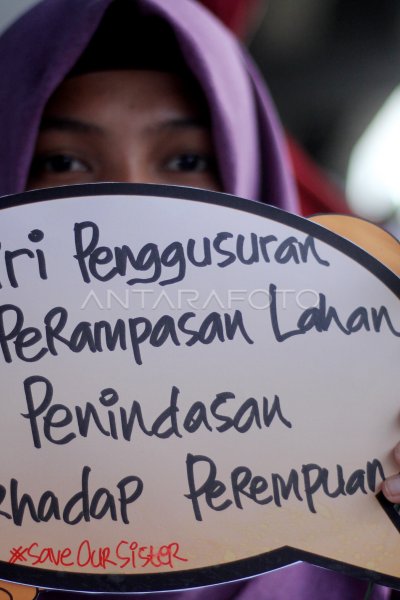 iri Penggusuran
Perampasan Lahan
Penindasan
rhadap Perempuan
#saveOurSister
ANTARAFOTO